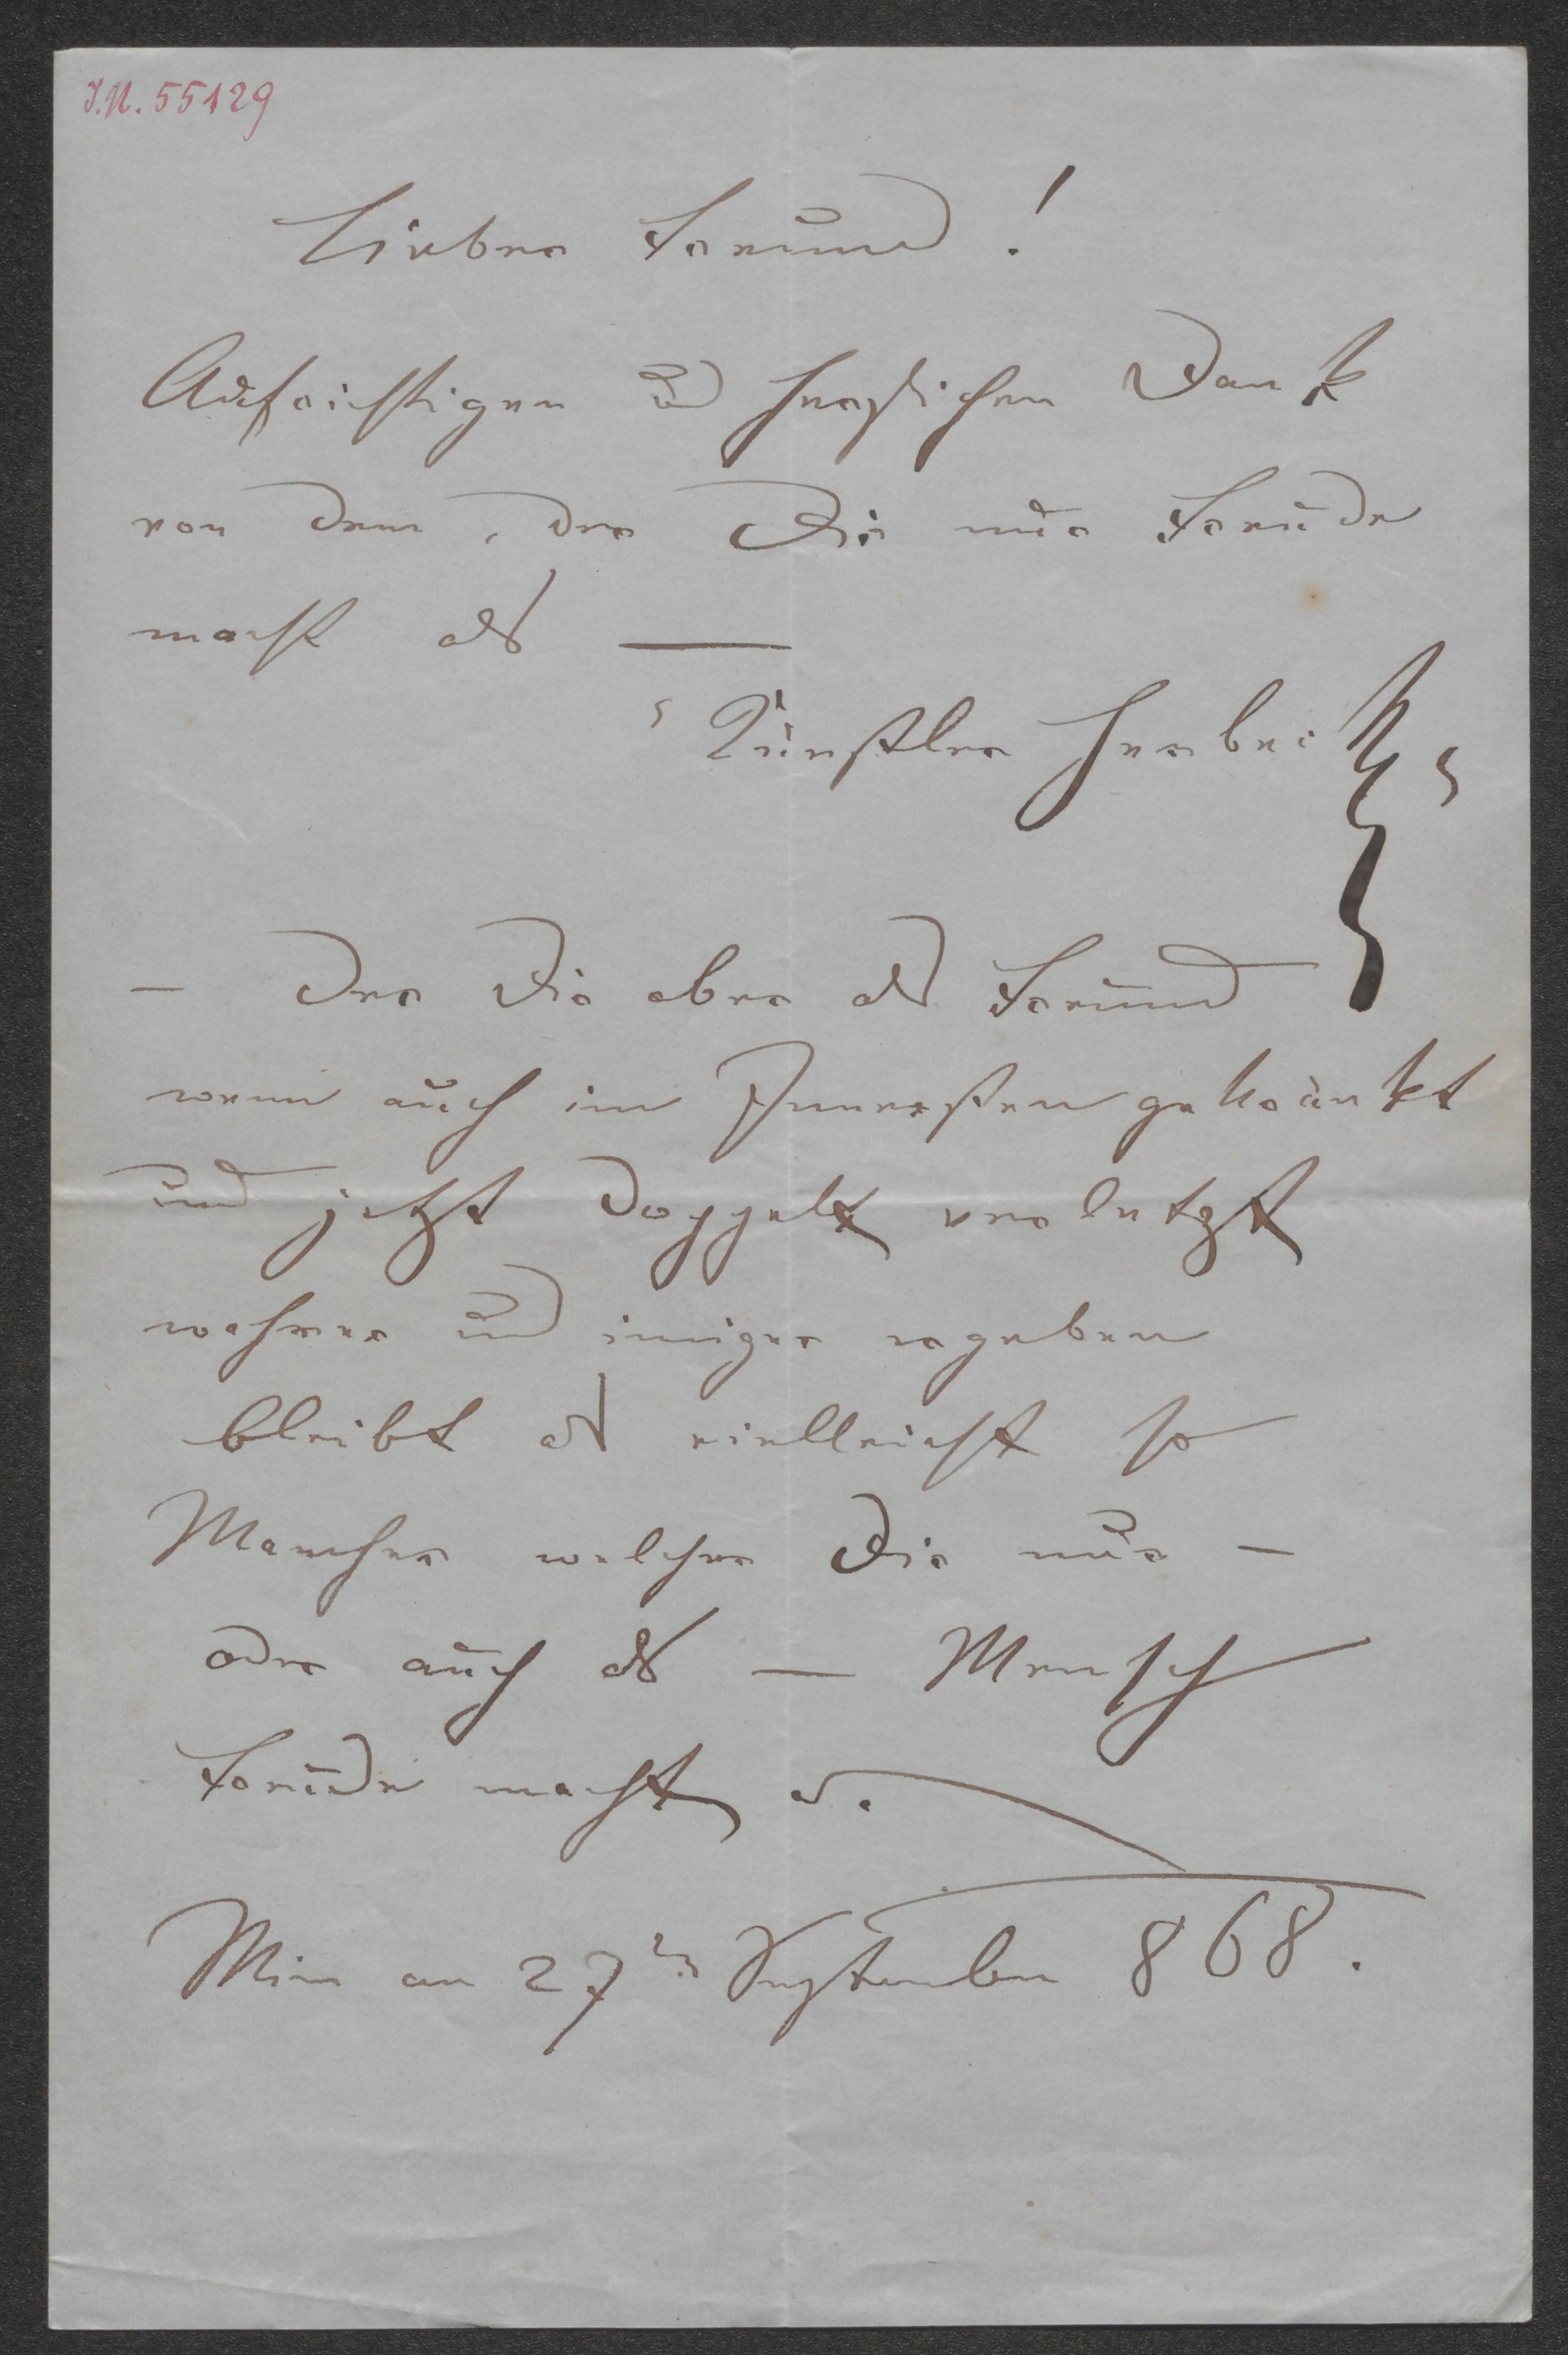 I.N. 55129
Lieber Freund!
Aufrichtigen und herzlichen Dank
von dem, der Dir nur Freude
macht als —
Künstler Herbeck
— Der Dir aber als Freund
wenn auch im Innersten gekränkt
und jetzt doppelt verletzt
wahrer und inniger ergeben
bleibt als vielleicht so
Mancher welcher Dir nur —
oder auch als — Mensch
Freude macht
Wien am 27ten September 868.